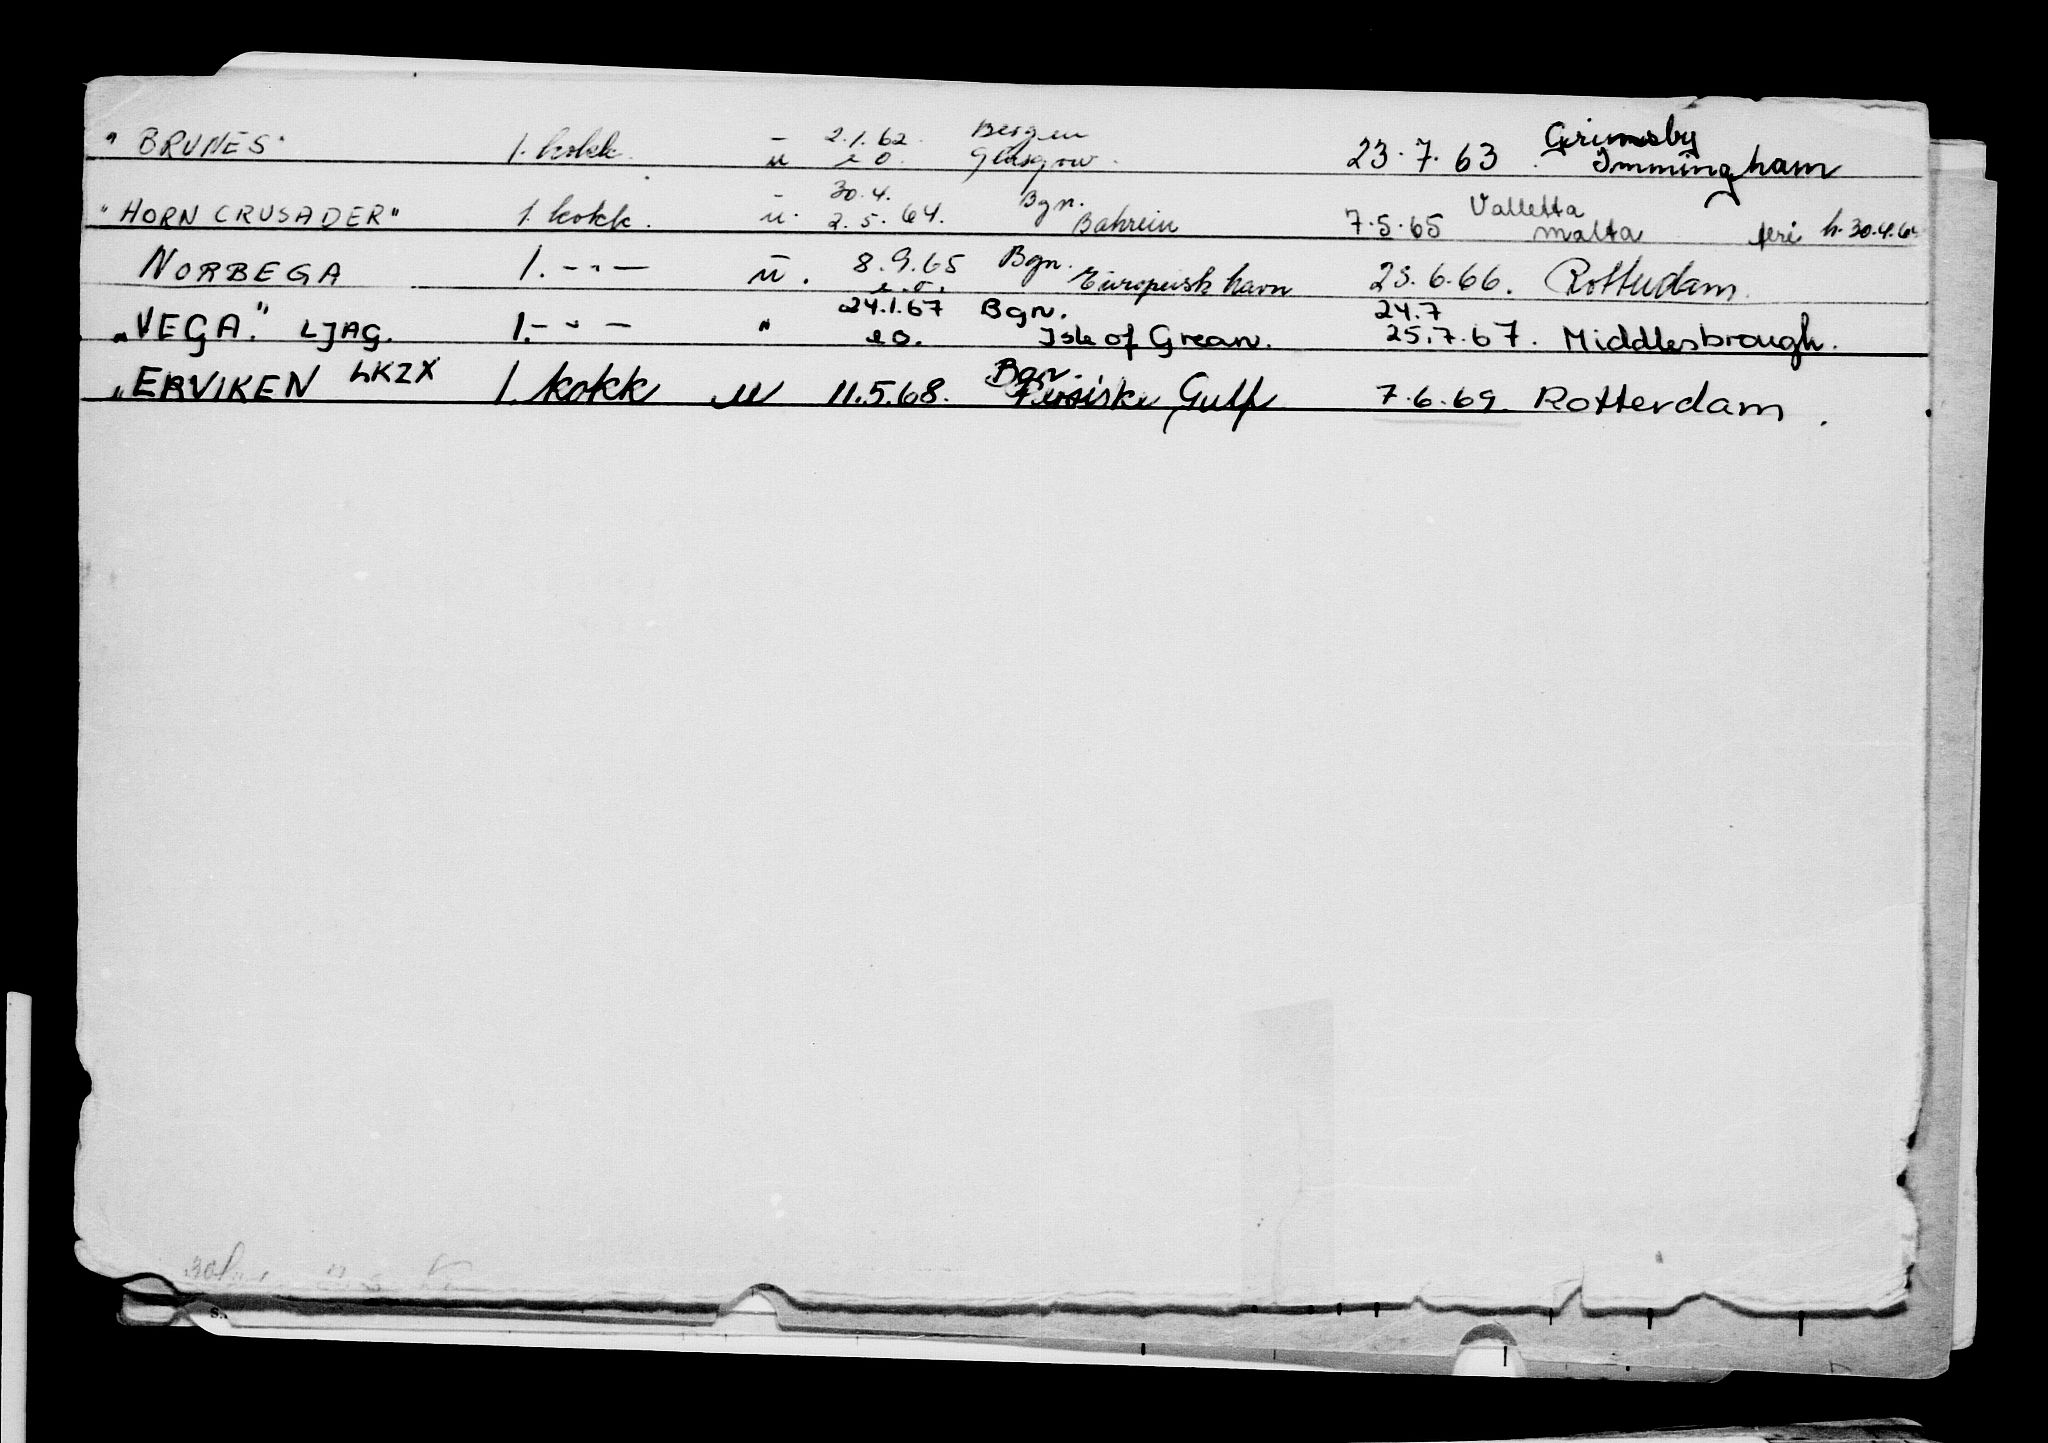 "BRUNES" 1. kokk. - u 2.1.62. e o. Bergen Glasgow. 23.7.63 Grimsby Immingham
"HORN CRUSADER" 1. kokk. u. 30.4. 2.5.64. Bgn. Bahrein 7.5.65 Valletta Malta feri h. 30.4.6
NORBEGA 1. -"- u. 8.9.65 e.o. Bgn. Europeisk havn 23.6.66. Rotterdam.
"VEGA." LJAG. 1. -"- " 24.1.67 e o. Bgn. Isle of Grean. 24.7 25.7.67. Middlesbrough.
"ERVIKEN LKZX 1. kokk u 11.5.68. Bgn. Persiske Gulf 7.6.69. Rotterdam.